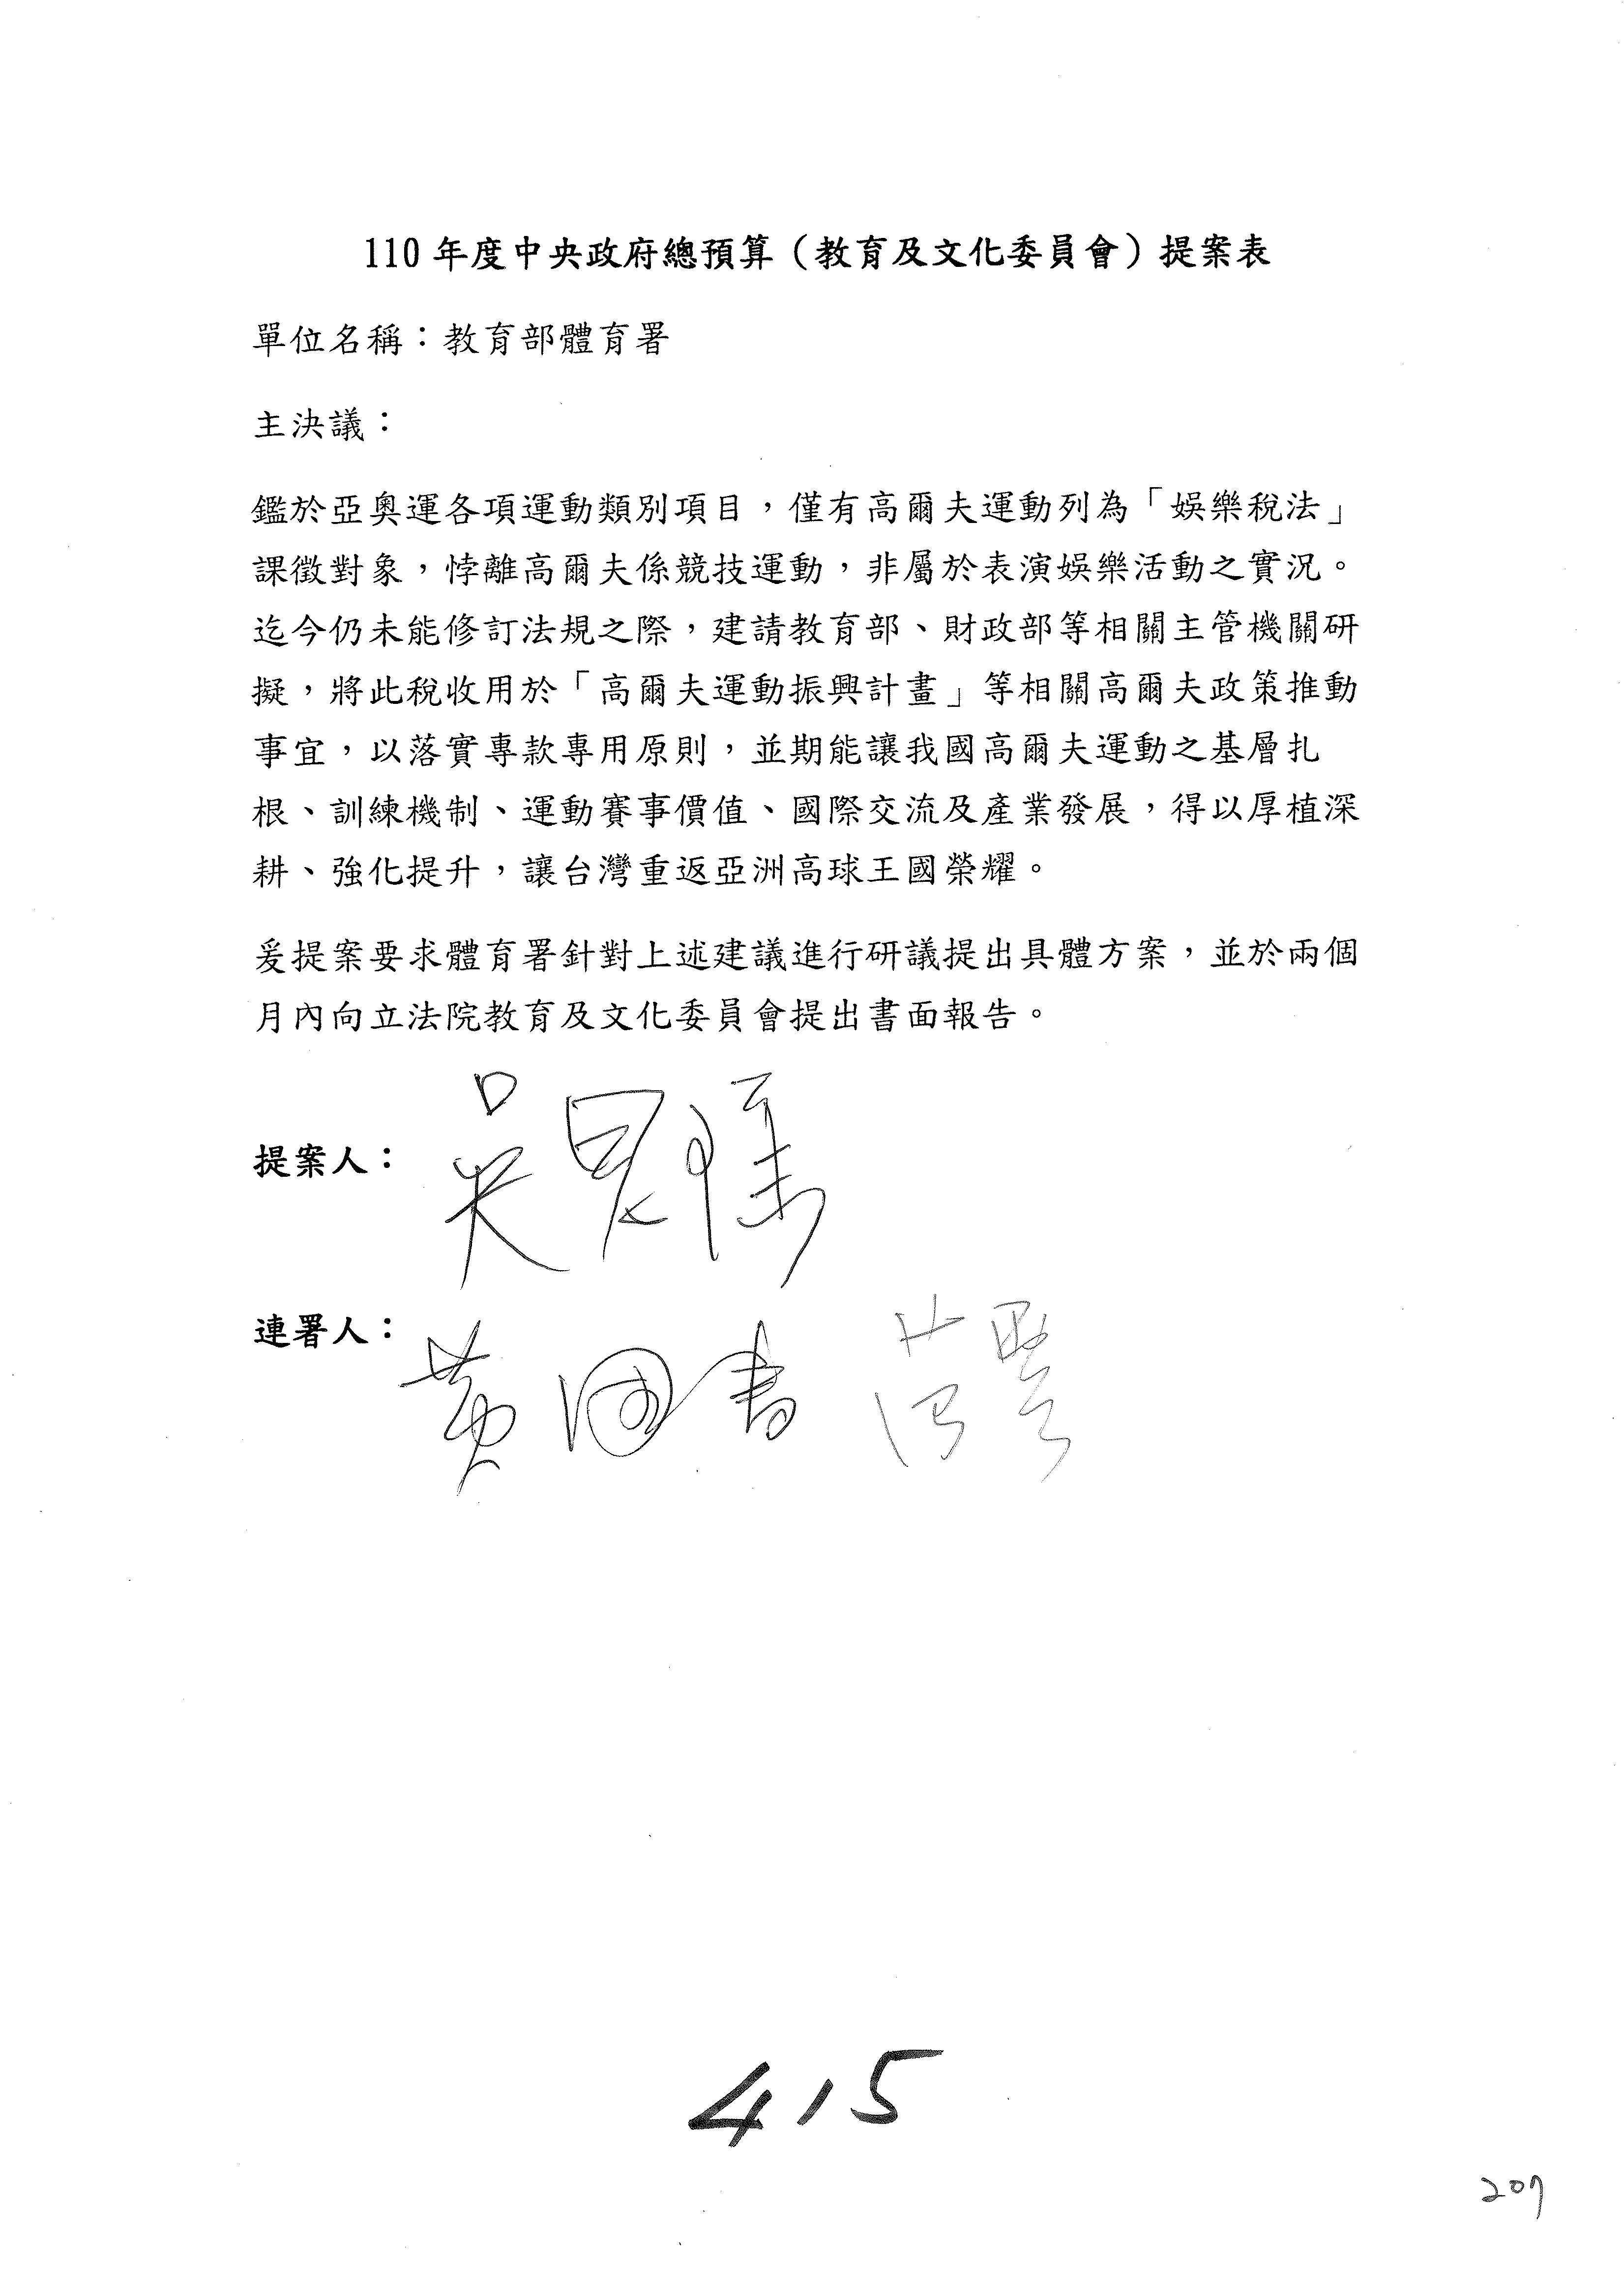 110 年度中央政府總預算（教育及文化委員會）提案表
單位名稱：教育部體育署
主決議：
鑑於亞奧運各項運動類別項目，僅有高爾夫運動列為「娛樂稅法」
課徵對象，悖離高爾夫係競技運動，非屬於表演娛樂活動之實況。
迄今仍未能修訂法規之際，建請教育部、財政部等相關主管機關研
擬，將此稅收用於「高爾夫運動振興計畫」等相關高爾夫政策推動
事宜，以落實專款專用原則，並期能讓我國高爾夫運動之基層扎
根、訓練機制、運動賽事價值、國際交流及產業發展，得以厚植深
耕、強化提升，讓台灣重返亞洲高球王國榮耀。
爰提案要求體育署針對上述建議進行研議提出具體方案，並於兩個
月內向立法院教育及文化委員會提出書面報告。
提案人：吳思
連署人：黃國書
415
207